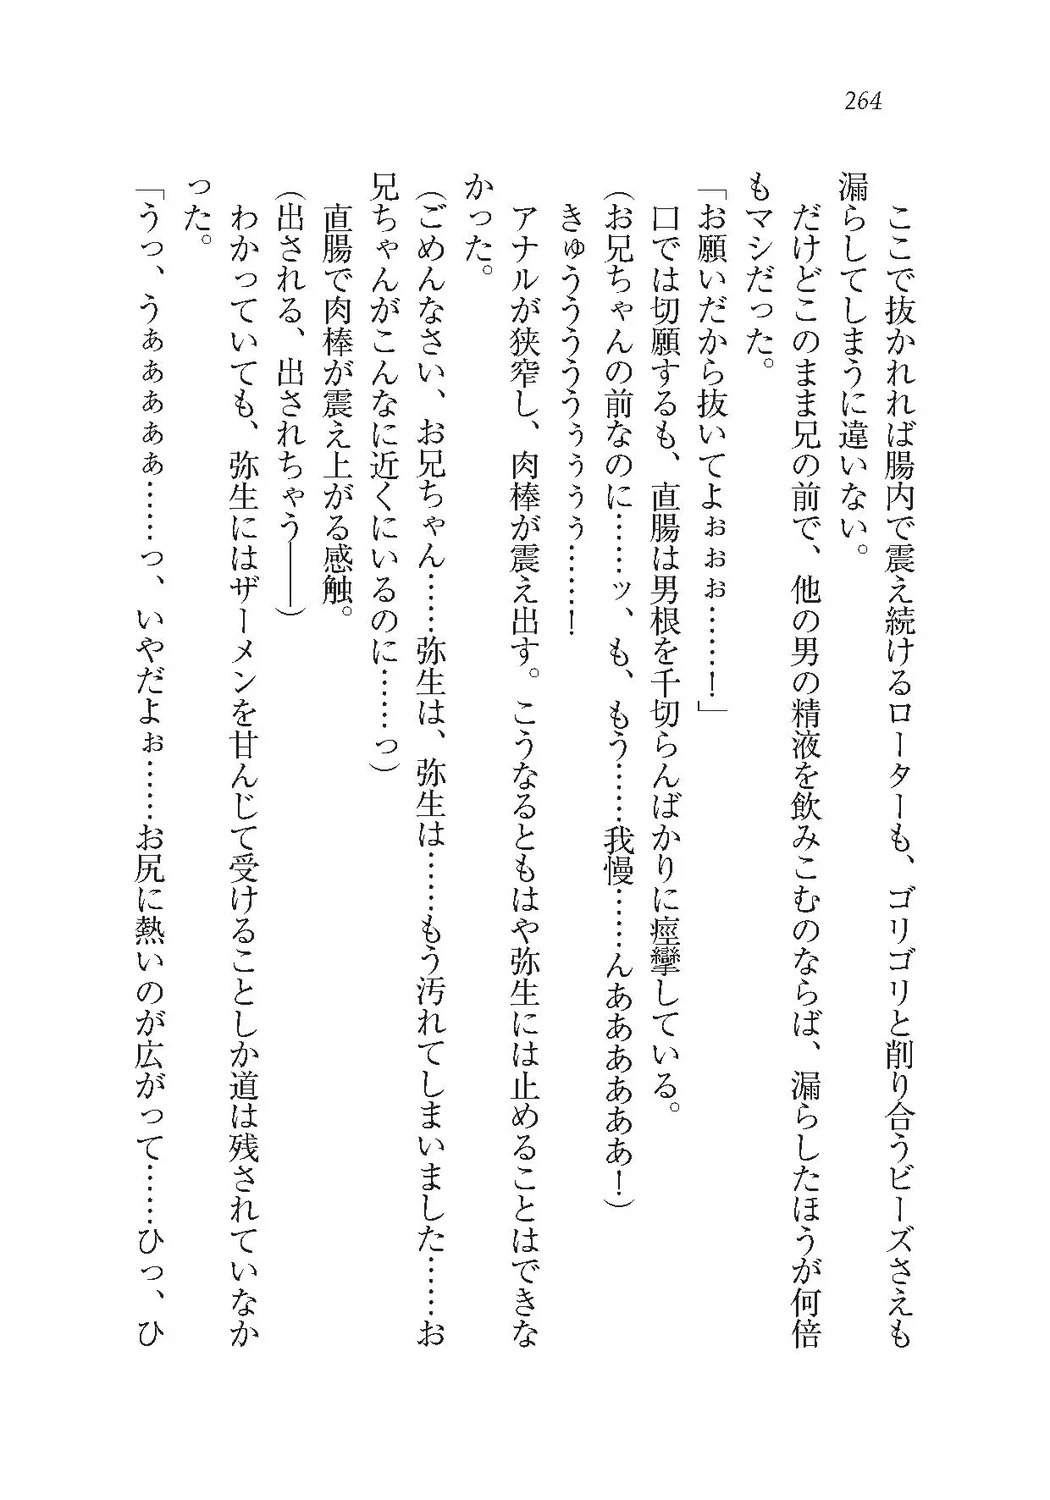 264
ここで抜かれれば腸内で震え続けるローターも、ゴリゴリと削り合うビーズさえも
漏らしてしまうに違いない。
だけどこのまま兄の前で、他の男の精液を飲みこむのならば、漏らしたほうが何倍
もマシだった。
「お願いだから抜いてよぉぉぉ……！」
口では切願するも、直腸は男根を千切らんばかりに痙攣している。
（お兄ちゃんの前なのに……ッ、も、もう……我慢……んああああああ！）
きゅうううううぅぅぅぅ……！
アナルが狭窄し、肉棒が震え出す。こうなるともはや弥生には止めることはできな
かった。
（ごめんなさい、お兄ちゃん……弥生は、弥生は……もう汚れてしまいました……お
兄ちゃんがこんなに近くにいるのに……っ）
直腸で肉棒が震え上がる感触。
（出される、出されちゃう――）
わかっていても、弥生にはザーメンを甘んじて受けることしか道は残されていなか
った。
「うっ、うぁぁぁぁぁ……っ、いやだよぉ……お尻に熱いのが広がって……ひっ、ひ